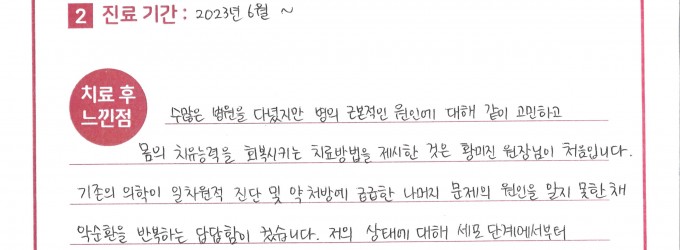 2 진료 기간 : 2023년 6월 ~
치료 후
느낀점
수많은 병원을 다녔지만 병의 근본적인 원인에 대해 같이 고민하고
몸의 치유능력을 회복시키는 치료방법을 제시한 것은 황미진 원장님이 처음입니다.
기존의 의학이 일차원적 진단 및 약 처방에 급급한 나머지 문제의 원인을 알지 못한 채
악순환을 반복하는 답답함이 컸습니다. 저의 상태에 대해 세포 단계에서부터